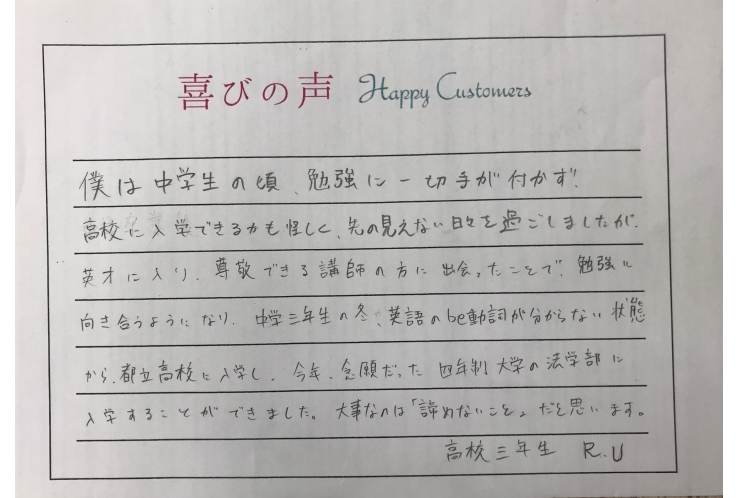 喜びの声 Happy Customers
僕は中学生の頃、勉強に一切手が付かず、
高校に入学できるかも怪しく、先の見えない日々を過ごしましたが、
英才に入り、尊敬できる講師の方に出会ったことで、勉強に
向き合うようになり、中学三年生の冬、英語のbe動詞が分からない状態
から、都立高校に入学し、今年、念願だった四年制大学の法学部に
入学することができました。大事なのは「諦めないこと」だと思います。
高校三年生 R.U